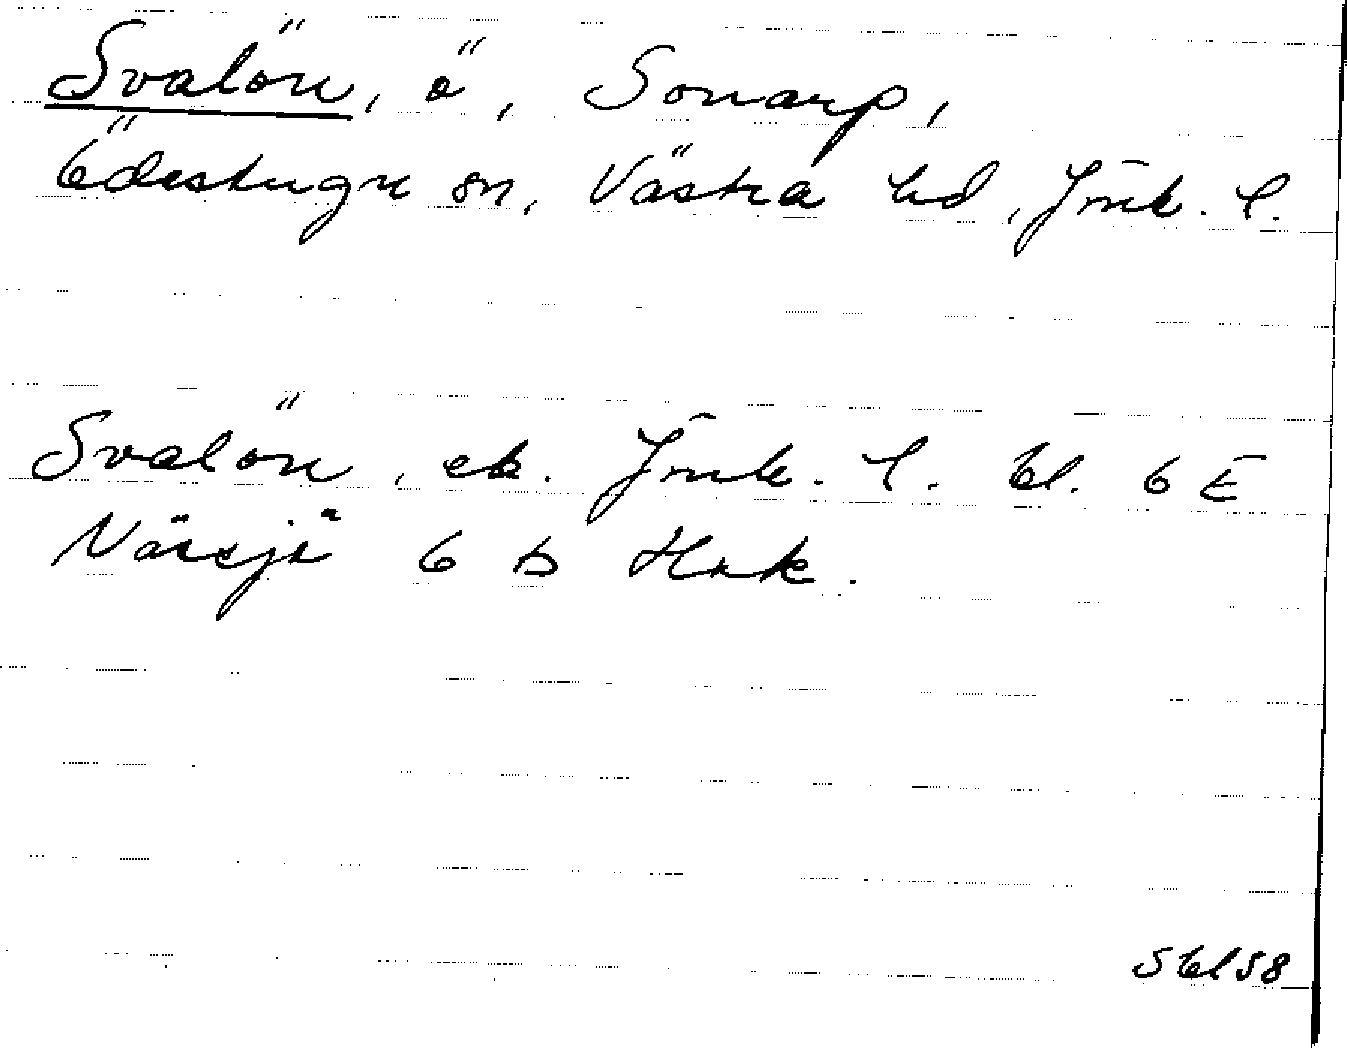 Svalön, ö, Sonarp,
Ödestugu sn, Västra hd, Jönk. l.
Svalön, ek. Jönk. l. bl. 6 E
Nässjö 6 b Hok.
S bl 58